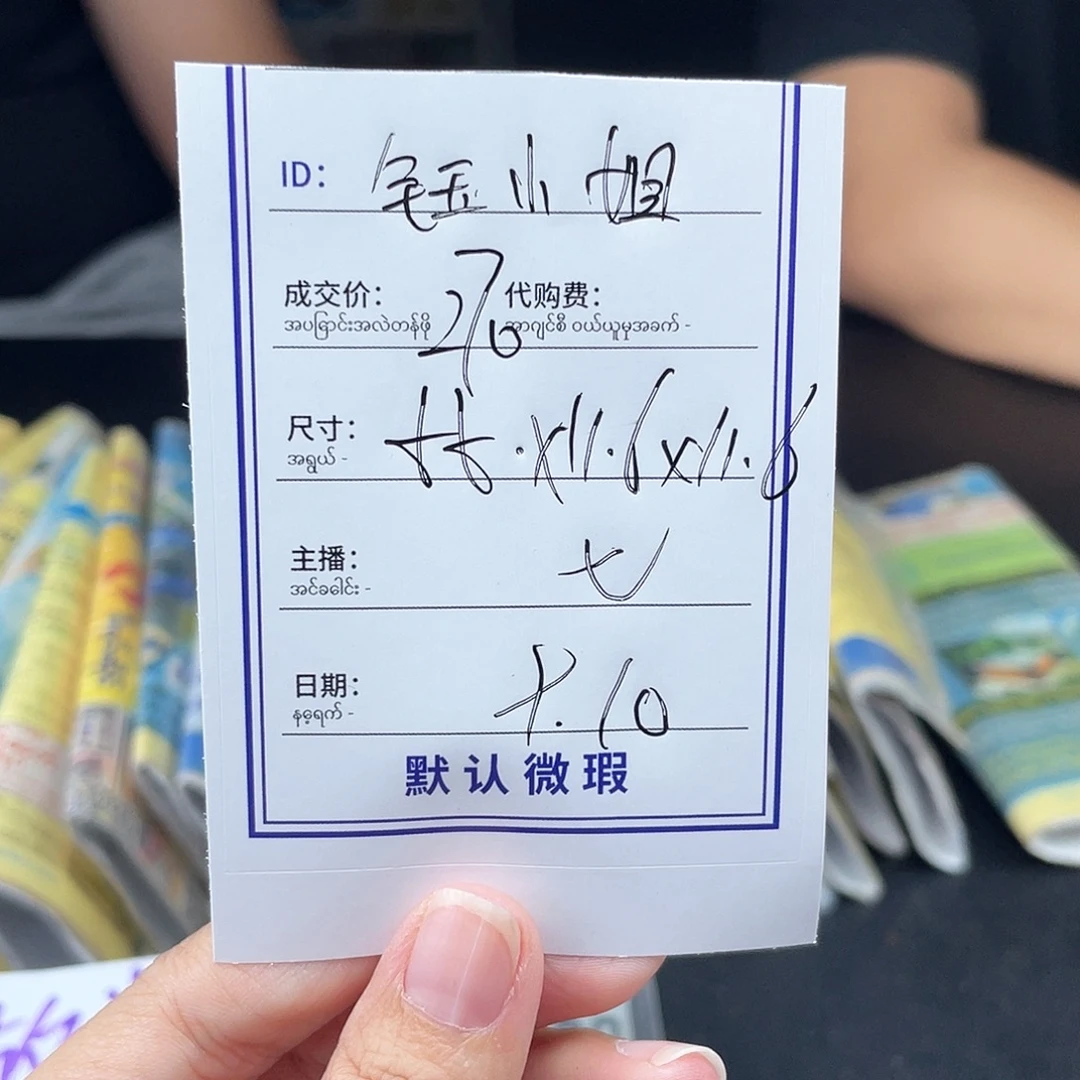 ID: 钰小姐
成交价: 270 代购费:
အပြောင်းအလဲတန်ဖို အာဂျင်စီ ဝယ်ယူမှုအခက် -
尺寸: 55.x11.6x11.6
အရွယ် -
主播: 七
အင်ခေါင်း -
日期: 7.10
နေ့ရက် -
默认微瑕